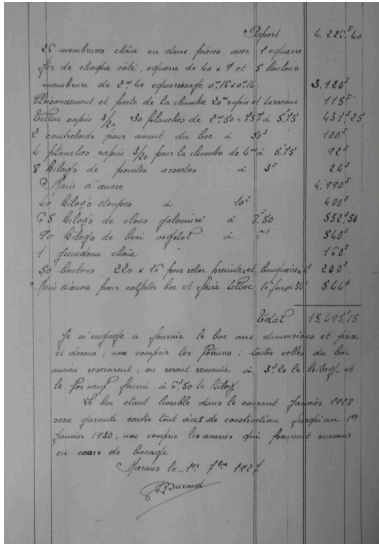 Report 4.225f40
26 membrures chêne en deux pièces avec 1 equerre
fer de chaque côté, equerre de 40 x 9 et 8 boulons
membrure de 2m40 equarrissage 0m16 x 0m14 3.120f
et porte de la chambre 20m sapin et 115f
sapin 3/20 30 planches de 2m50 = à 5f75 431f25
2 pour avant du bac à 50f 100f
4 planches sapin 3/20 pour la chambre de 4m à 5f75 92f
8 kilogs de pointes assorties à 3f 24f
Main d'œuvre 4.990f
40 kilogs étoupes à 10f 400f
65 kilogs de clous galvanisé à 8f50 552f50
90 kilogs de brai végétal à 6f 540f
1 chêne 150f
50 boulons 220 x 15 pour relier et à 4f 200f
Main d'œuvre pour bac et faire 544f
Total 15.495,15
Je m'engage à fournir le bac aux dimensions et prix
ci dessus ; non compris les ferrures ; toutes celles du bac
ancien resservant, ou seront remanié à 3f20 le kilog, et
le fer neuf fourni à 6f50 le kilog.
Le bac étant livrable dans le courant Janvier 1928
sera garanti contre tout vices de construction jusqu'au 1er
Janvier 1930, non compris les avaries qui pourrait survenir
en cours de
Marans le 1er 7bre 1927
Durand